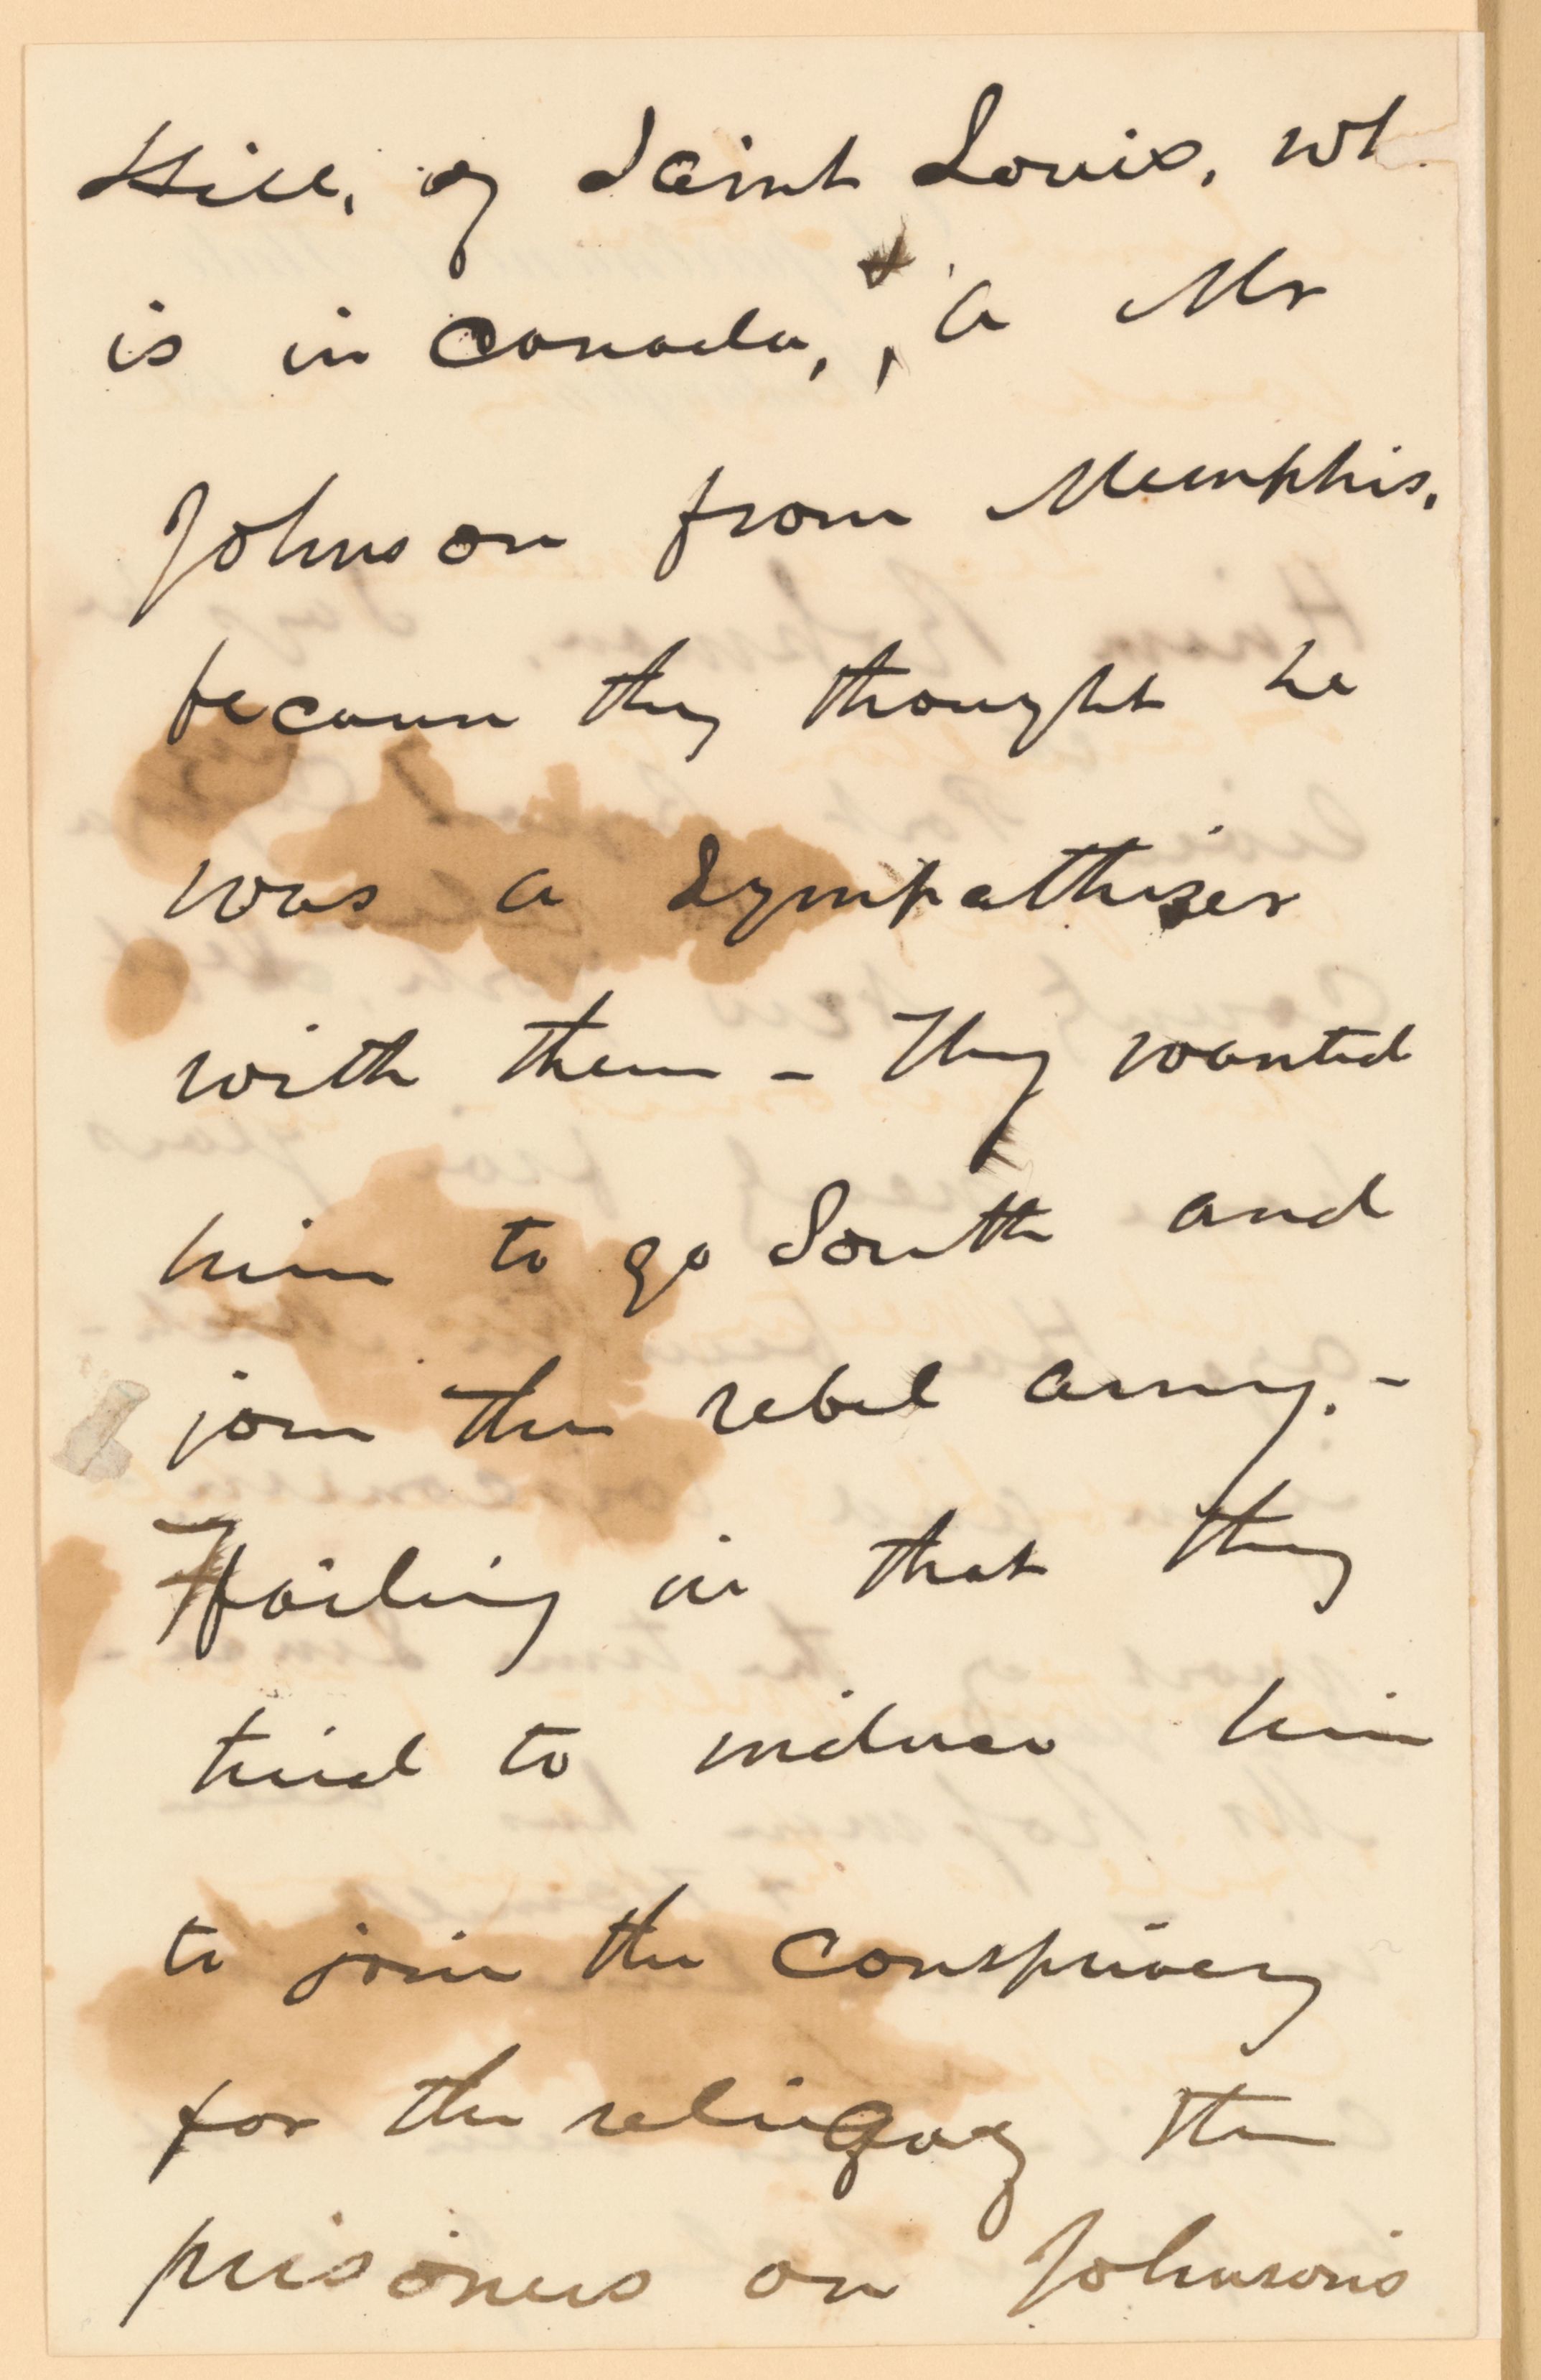 Hill, of Saint Louis, wh
is in Canada, & , a Mr
Johnson from Memphis,
because they thought he
was a Sympathiser
with them - They wanted
him to go South and
join the rebel army. -
Failing in that they
tried to induce him
to join the Conspiracy
for the of the
prisoners on Johnson's